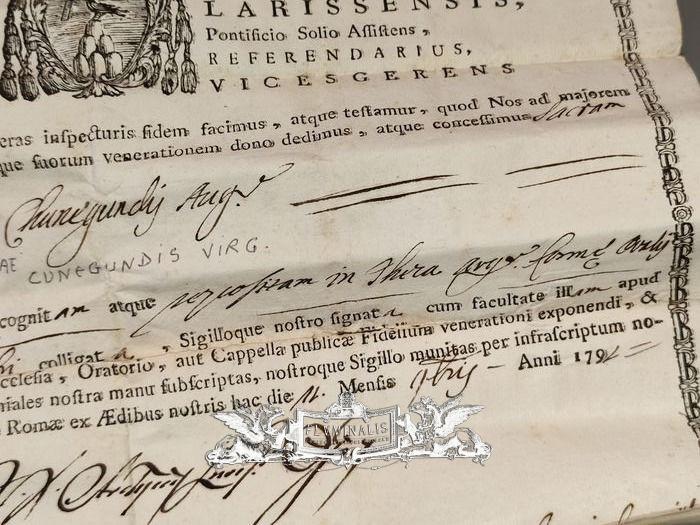 LARISSENSIS,
Pontificio Solio Assistens,
REFERENDARIUS,
VICESGERENS
eras inspecturis fidem facimus, atque testamur, quod Nos ad majorem
que suorum venerationem dono dedimus, atque concessimus Sacram
Chunegundis Aug.
AE CUNEGUNDIS VIRG.
cognitam atque repositam in Theca formę
colligata, Sigilloque nostro signata cum facultate illam apud
cclesia, Oratorio, aut Cappella publicæ Fidelium venerationi exponendi, &
niales nostra manu subscriptas, nostroque Sigillo munitas per infrascriptum no-
Romæ ex Ædibus nostris hac die 11. Mensis 7bris Anni 179
FLUMINALIS